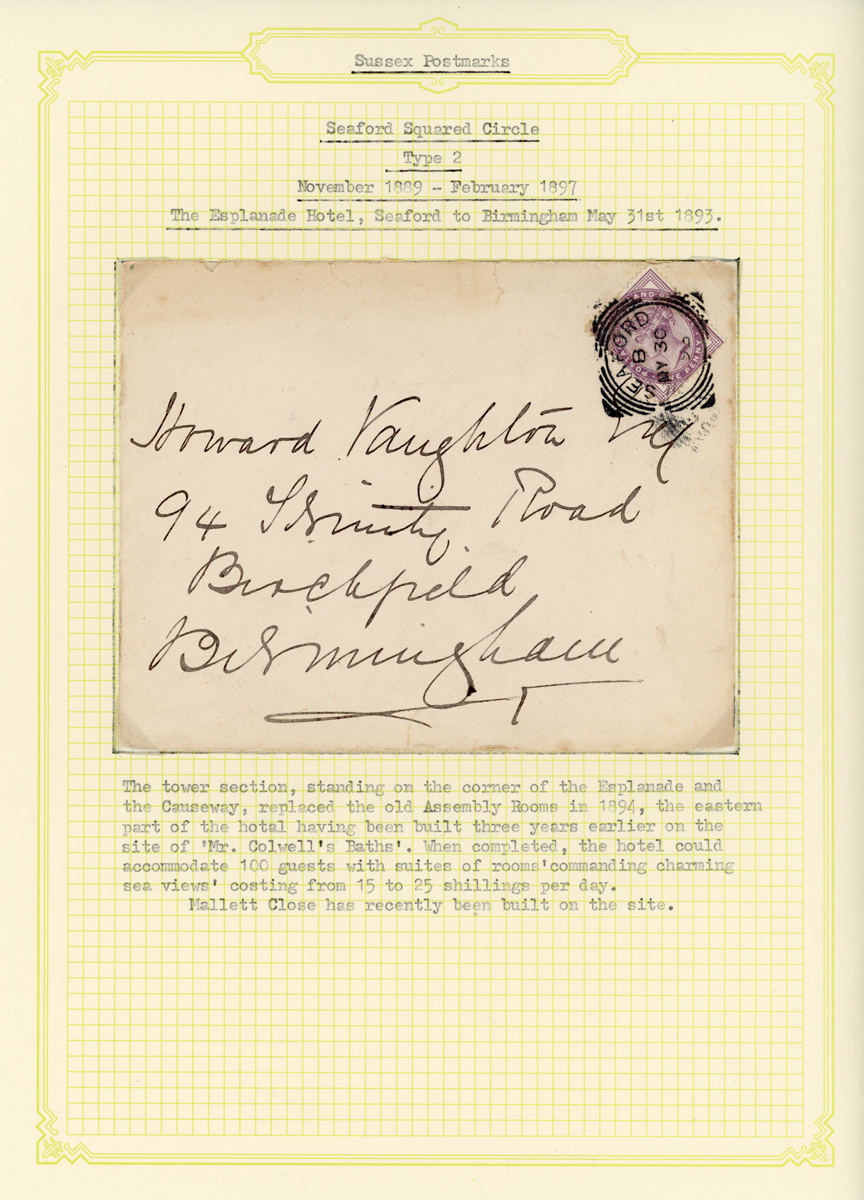 Sussex Postmarks
Seaford Squared Circle
Type 2
November 1889 - February 1897
The Esplanade Hotel, Seaford to Birmingham May 31st 1893.
SEAFORD
B
MY 30
Howard Vaughton Esq
94 Trinity Road
Birchfield
Birmingham
The tower section, standing on the corner of the Esplanade and
the Causeway, replaced the old Assembly Rooms in 1894, the eastern
part of the hotal having been built three years earlier on the
site of 'Mr. Colwell's Baths'. When completed, the hotel could
accommodate 100 guests with suites of rooms'commanding charming
sea views' costing from 15 to 25 shillings per day.
Mallett Close has recently been built on the site.